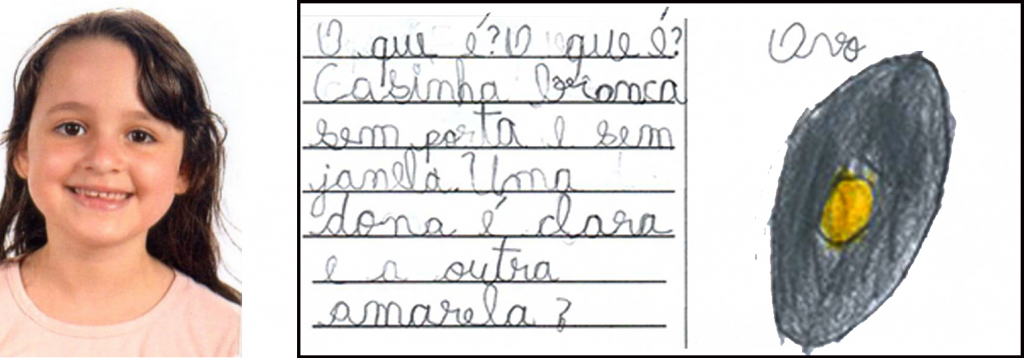 O que é? O que é?
Casinha branca
sem porta e sem
janela? Uma
dona é clara
e a outra
amarela?
Ovo